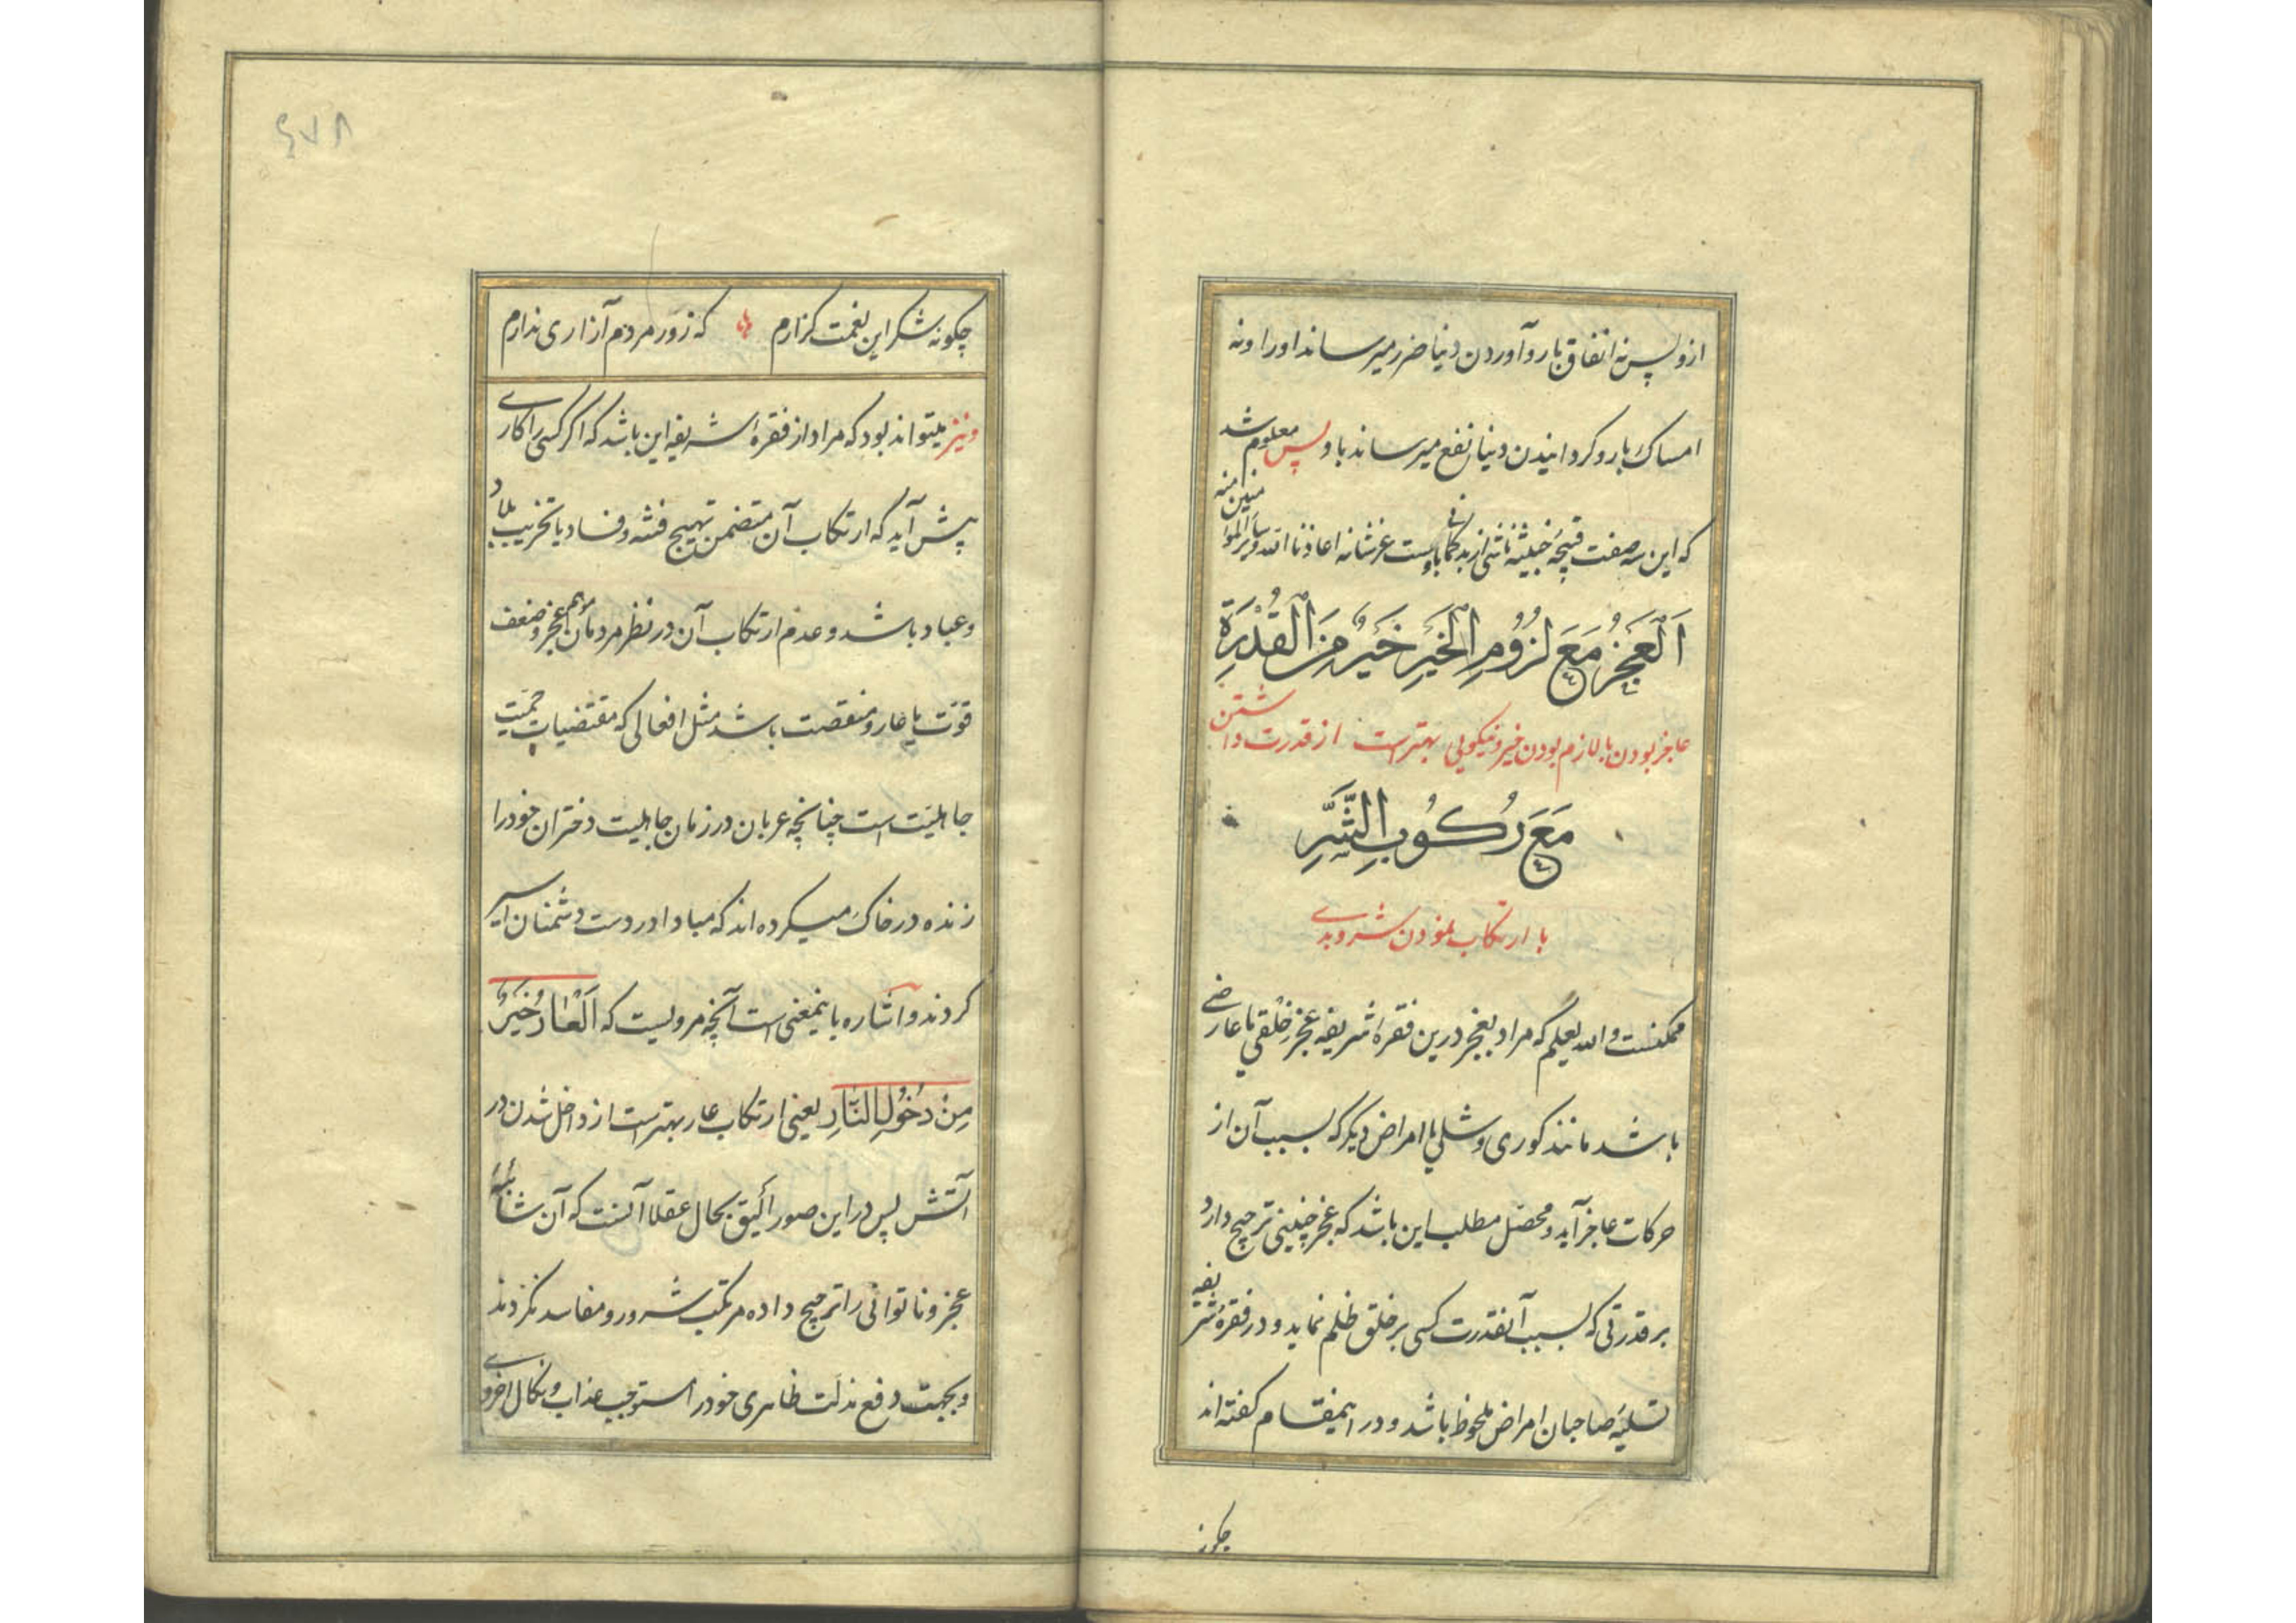 ازو پس نه انفاق با رو آوردن دنیا ضرر میرساند او را و نه
امساک با رو گردانیدن دنیا نفع میرساند باو پس معلوم شد
که این سه صفت قبیحهٔ خبیثه ناشی از بدگمانی باوست عز شانه اعاذنا الله و سایر المؤمنین منه
اَلْعَجْزُ مَعَ لُزُومِ الْخَیْرِ خَیْرٌ مِنَ الْقُدْرَةِ
عاجز بودن با لازم بودن خیر و نیکویی بهترست از قدرت داشتن
مَعَ رُکُوبِ الشَّرِّ
با ارتکاب نمودن شر و بدی
ممکنست والله یعلم که مراد بعجز درین فقرهٔ شریفه عجز خلقی یا عارضی
باشد مانند کوری و شلی یا امراض دیگر که بسبب آن از
حرکات عاجز آید و محصّل مطلب این باشد که عجز چنینی ترجیح دارد
بر قدرتی که بسبب آنقدرت کسی بر خلق ظلم نماید و در فقرهٔ شریفه
تسلیهٔ صاحبان امراض ملحوظ باشد و در اینمقام گفته اند
چگونه
۶۷۸
چگونه شکر این نعمت گزارم که زور مردم آزاری ندارم
و نیز میتواند بود که مراد از فقرهٔ شریفه این باشد که اگر کسی را کاری
پیش آید که ارتکاب آن متضمن تهییج فتنه و فساد یا تخریب بلاد
و عباد باشد و عدم ارتکاب آن در نظر مردمان موهم عجز و ضعف
قوّت یا عار و منقصت باشد مثل افعالی که مقتضیات حمیّت
جاهلیّت است چنانچه عربان در زمان جاهلیت دختران خود را
زنده در خاک میکرده اند که مبادا در دست دشمنان اسیر
گردند و اشاره باینمعنی است آنچه مرویست که اَلْعَارُ خَیْرٌ
مِنْ دُخُولِ النَّارِ یعنی ارتکاب عار بهترست از داخل شدن در
آتش پس در این صور الیق بحال عقلا آنست که آن شائبهٔ
عجز و ناتوانی را ترجیح داده مرتکب شرور و مفاسد نگردند
و بجهت دفع مذلّت ظاهری خود را مستوجب عذاب و نکال اخروی